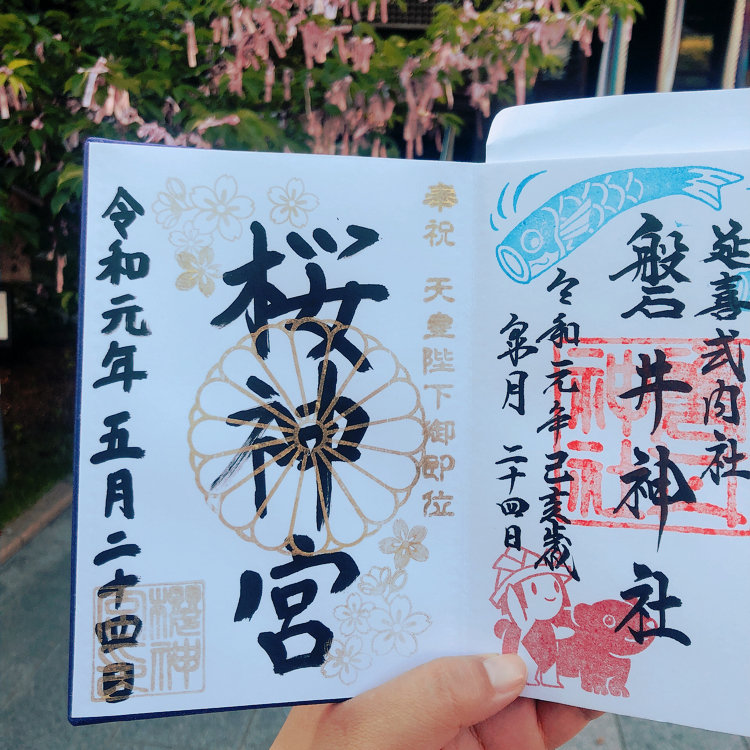 延喜式内社
磐井神社
令和元年己亥歳
皐月 二十四日
奉祝 天皇陛下御即位
桜神宮
令和元年五月二十四日